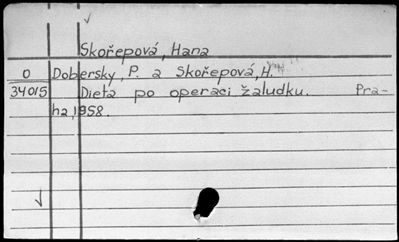 Skořepová, Hana
O Dobersky, P. a Skořepová, H.
34015 Dieta po operaci žaludku. Pra-
ha, 1958.